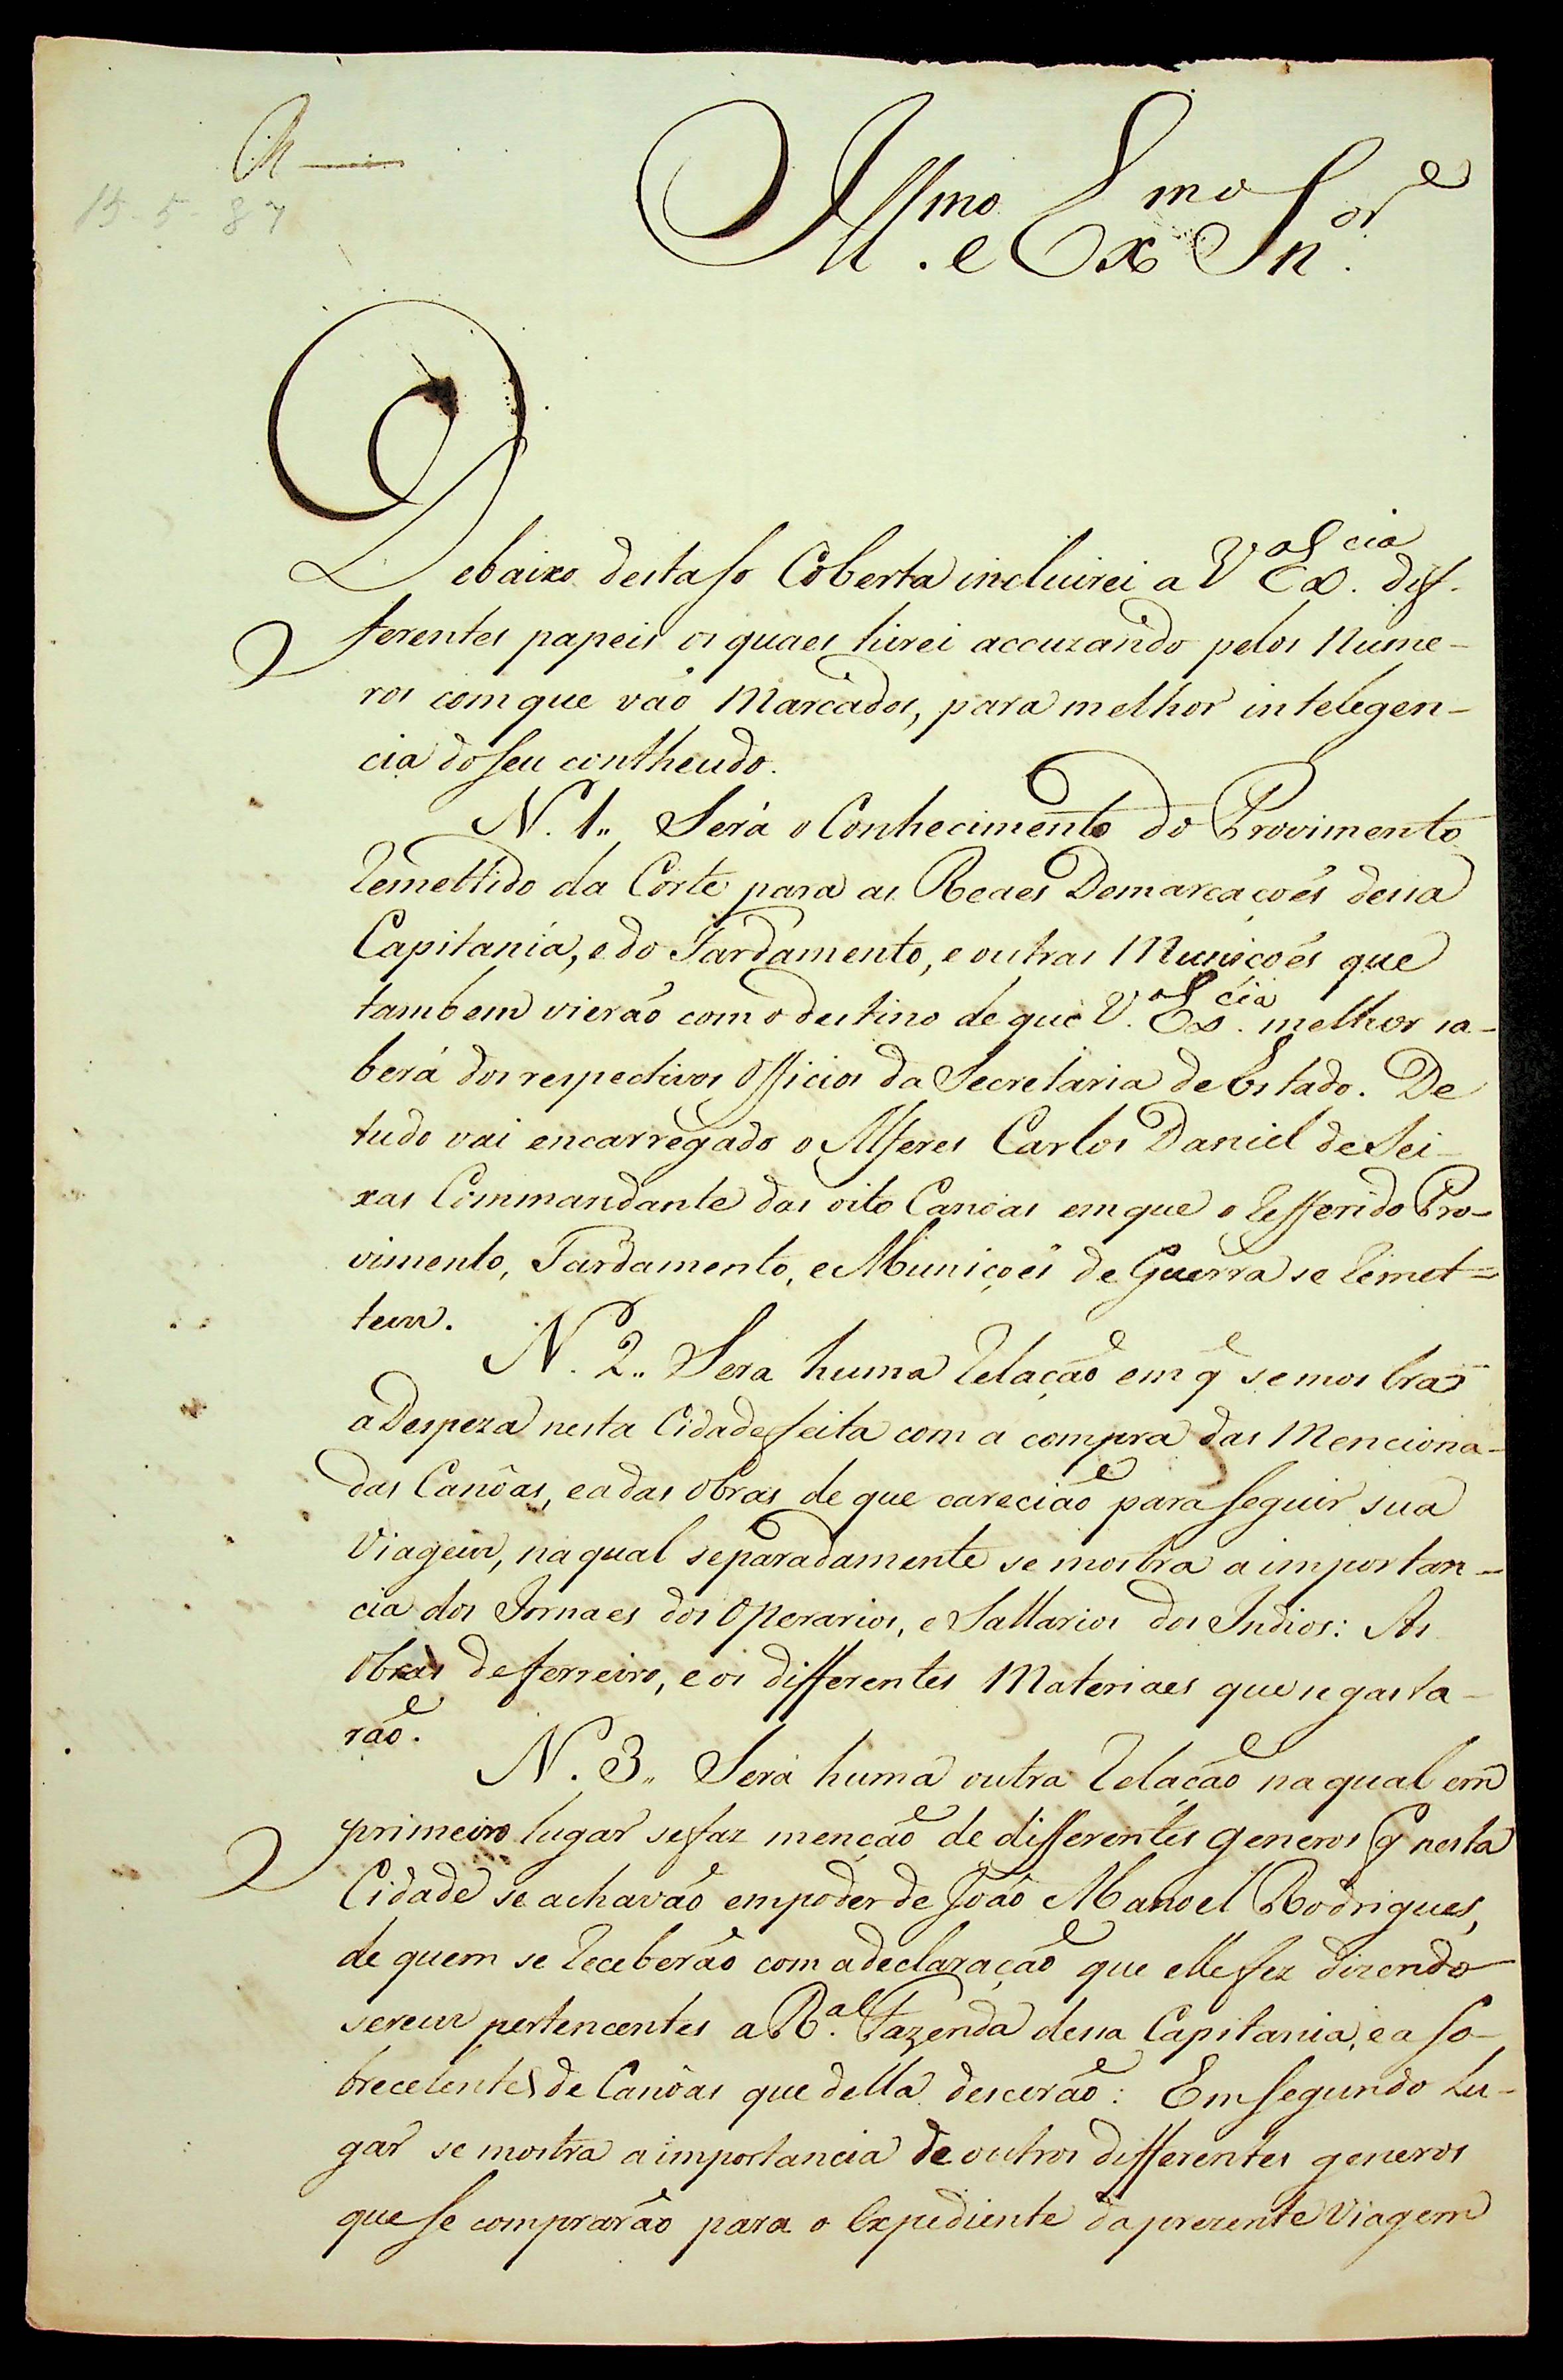 15-5-87
Ill.mo e Ex.mo Sn.or
Debaixo desta so Coberta incluirei a V.a Ex.cia dif-
ferentes papeis os quaes hirei accuzando pelos Nume-
ros com que vão Marcados, para melhor intelegen-
cia do seu contheudo.
N. 1.. Será o Conhecimento do Provimento
remettido da Corte para as Reaes Demarcaçoẽs dessa
Capitanía, e do Fardamento, e outras Muniçoẽs que
tambem vierão com o destino de que V.a Ex.cia melhor sa-
berá dos respectivos Officios da Secretaria de Estado. De
tudo vai encarregado o Alferes Carlos Daniel de Sei-
xas Commandante das oito Canoas em que o refferido Pro-
vimento, Fardamento, e Muniçoẽs de Guerra se remet=
tem.
N. 2.. Sera huma relação em q̃ se mostra
a Despeza nesta Cidade feita com a compra das Menciona-
das Canôas, e a das obras de que carecião para seguir sua
Viagem, na qual separadamente se mostra a importan-
cia dos Jornaes dos Operarios, e Sallarios dos Indios: As
Obras de ferreiro, e os differentes Materiaes que se gasta-
rão.
N. 3.. Será huma outra relação na qual em
primeiro lugar se faz menção de differentes generos q̃ nesta
Cidade se achavão em poder de João Manoel Rodrigues,
de quem se receberão com a declaração que elle fez dizendo
serem pertencentes a R.al Fazenda dessa Capitania, e a so-
brecelentes de Canôas que della descerão: Em segundo Lu-
gar se mostra a importancia de outros differentes generos
que se comprarão para o Expediente da prezente Viagem